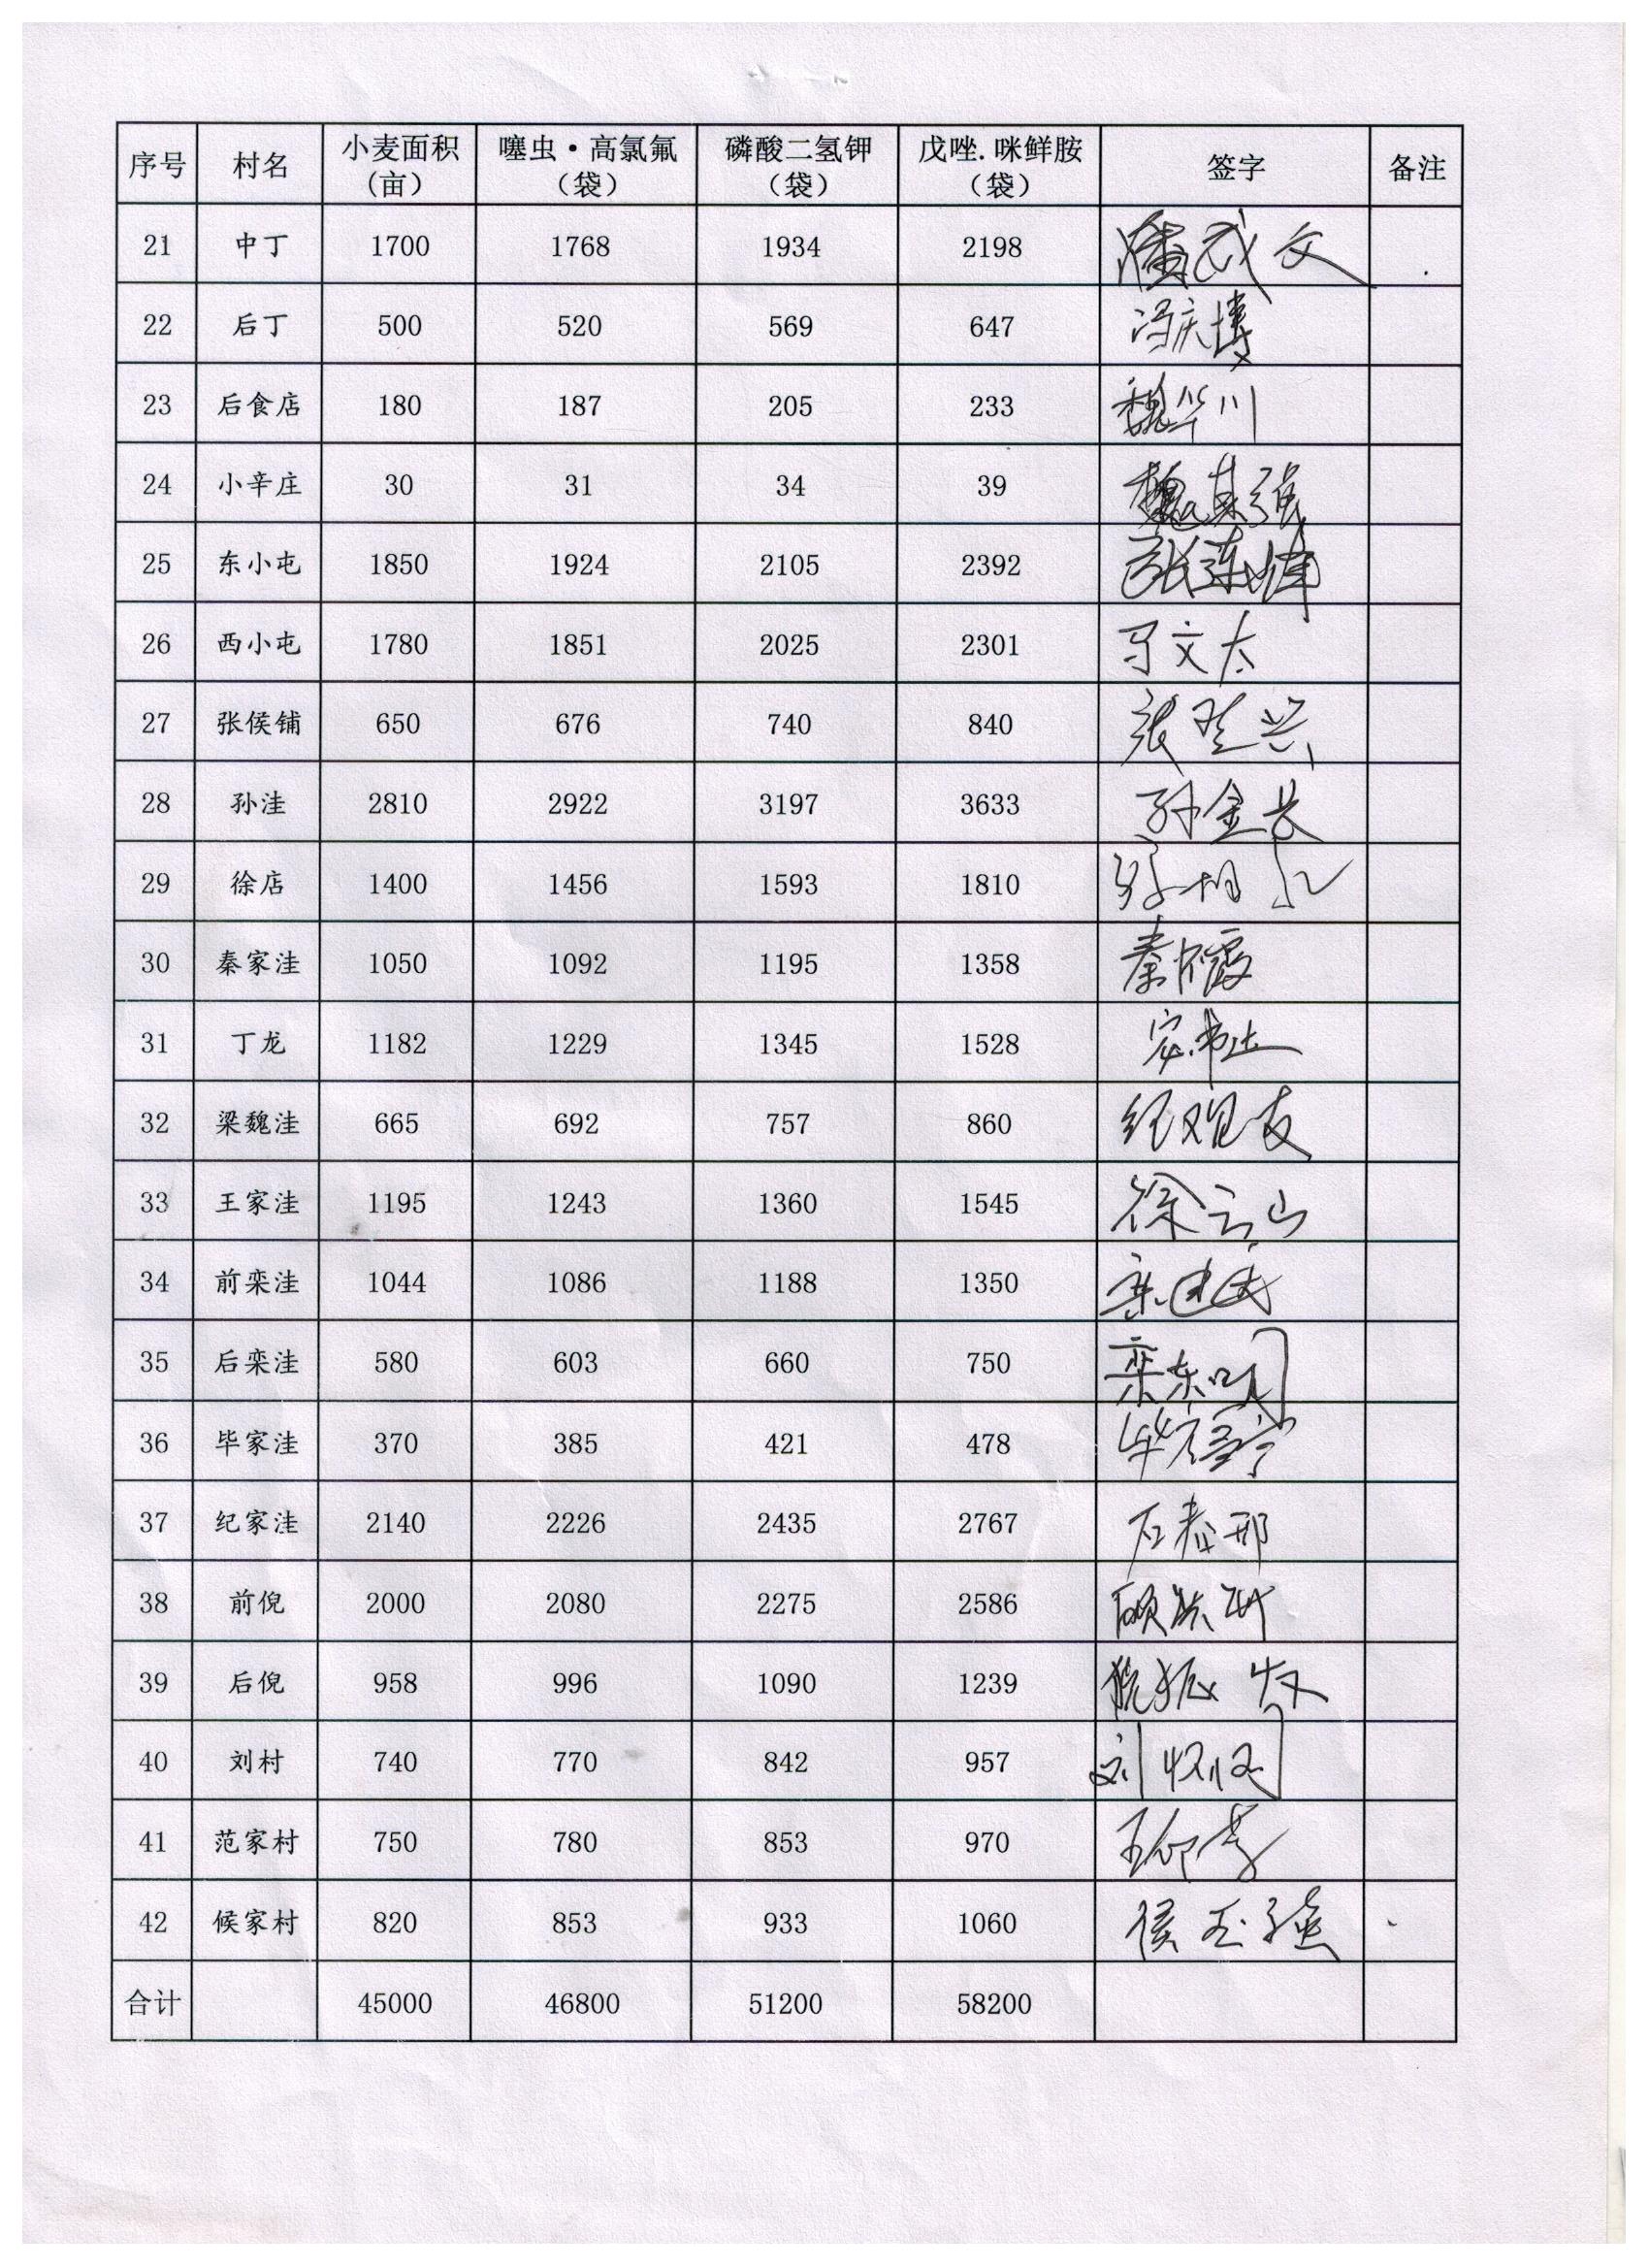 序号 村名 小麦面积（亩） 噻虫·高氯氟（袋） 磷酸二氢钾（袋） 戊唑.咪鲜胺（袋） 签字 备注
21 中丁 1700 1768 1934 2198
22 后丁 500 520 569 647 冯庆博
23 后食店 180 187 205 233 魏华川
24 小辛庄 30 31 34 39 魏其强
25 东小屯 1850 1924 2105 2392
26 西小屯 1780 1851 2025 2301 马文太
27 张侯铺 650 676 740 840 张登兴
28 孙洼 2810 2922 3197 3633 孙金长
29 徐店 1400 1456 1593 1810
30 秦家洼 1050 1092 1195 1358 秦怀霞
31 丁龙 1182 1229 1345 1528
32 梁魏洼 665 692 757 860
33 王家洼 1195 1243 1360 1545 徐云山
34 前栾洼 1044 1086 1188 1350
35 后栾洼 580 603 660 750
36 毕家洼 370 385 421 478
37 纪家洼 2140 2226 2435 2767
38 前倪 2000 2080 2275 2586
39 后倪 958 996 1090 1239
40 刘村 740 770 842 957
41 范家村 750 780 853 970
42 候家村 820 853 933 1060 侯玉强
合计 45000 46800 51200 58200